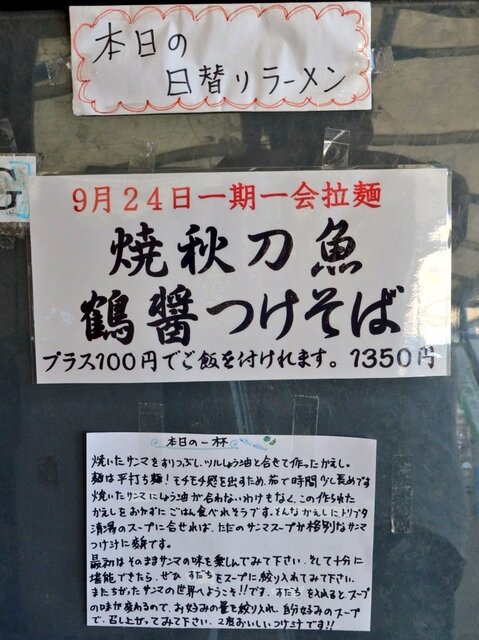 本日の
日替りラーメン
G
9月24日一期一会拉麺
焼秋刀魚
鶴醤つけそば
プラス100円でご飯を付けれます。1350円
本日の一杯
焼いたサンマをすりつぶし、ツルしょう油と合せて作ったかえし。
麺は平打ち麺！モチモチ感を出すため、茹で時間少し長めです
焼いたサンマにしょう油が合わないわけもなく、この作られた
かえしをおかずにごはん食べれそうです。そんなかえしにトリブタ
清湯のスープに合せれば、ただのサンマスープが格別なサンマ
つけ汁に変身です。
最初はそのままサンマの味を楽しんでみて下さい、そして十分に
堪能できたら、ぜひ すだちをスープに絞り入れてみて下さい、
またちがったサンマの世界へようこそ!!です。すだちを入れるとスープ
の味が変わるので、お好みの量を絞り入れ、自分好みのスープ
で、召し上がってみて下さい、2度おいしいつけ汁です!!